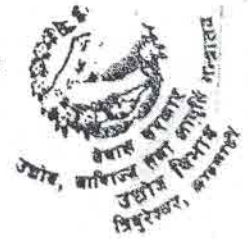 नेपाल सरकार
उद्योग, वाणिज्य तथा आपूर्ति मन्त्रालय
उद्योग विभाग
त्रिपुरेश्वर, काठमाडौं